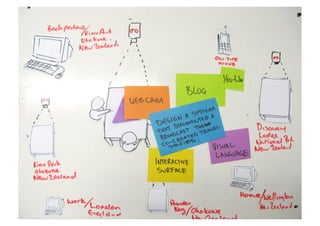 Backpackers/
Rimu Park
Ohakune
New Zealand
ON THE
MOVE
YouTube
BLOG
WEBCAM
DESIGN A SYSTEM
THAT DOCUMENTED &
BROADCAST THESE
CO-CREATED TRAVEL
STORIES.
Discovery
Lodge
National Park
New Zealand
VISUAL
LANGUAGE
INTERACTIVE
SURFACE
Rimu Park
Ohakune
New Zealand
Work/London
England
Powder
Keg/Ohakune
New Zealand
Home/Wellington
New Zealand